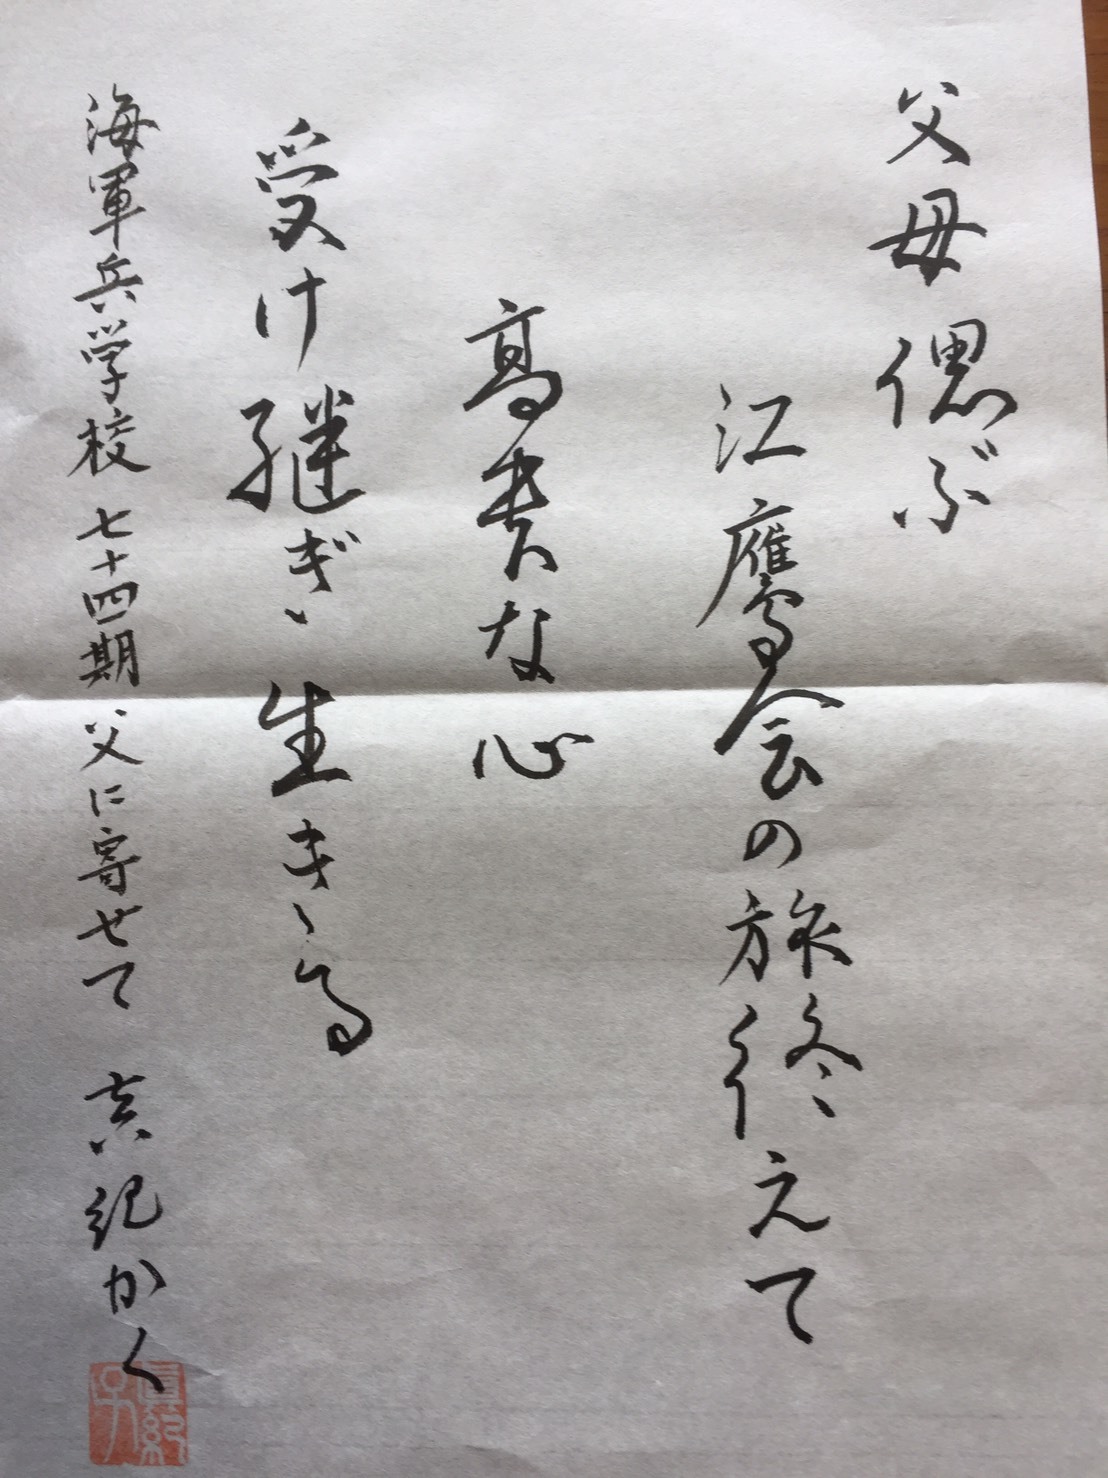 父母偲ぶ
江鷹会の旅終えて
高貴な心
受け継ぎ生きる
海軍兵学校 七十四期 父に寄せて 真紀かく
眞紀子